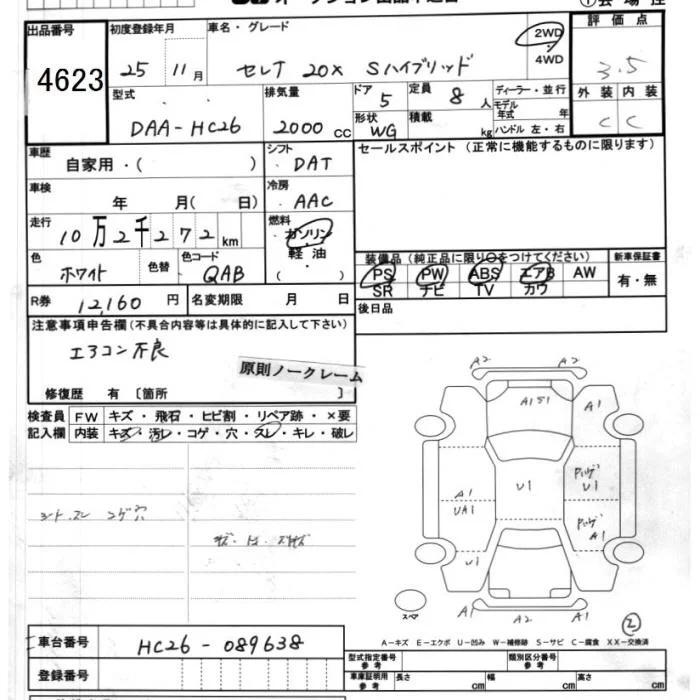 出品番号
4623
初度登録年月
25 11月
車名・グレード
セレナ 20X Sハイブリッド
2WD
4WD
評価点
3.5
外装 内装
C C
型式
DAA-HC26
排気量
2000 cc
ドア 5
定員 8 人
形状 WG
積載 kg
ディーラー・並行
モデル年式 年
ハンドル 左・右
車歴
自家用・( )
シフト
DAT
セールスポイント(正常に機能するものに限ります)
車検
年 月( 日)
冷房
AAC
走行
10万2千272km
燃料
ガソリン
軽油
( )
色
ホワイト
色替
色コード
QAB
装備品(純正品に限り○をつけてください)
PS PW ABS エアB AW
SR ナビ TV カワ
新車保証書
有・無
R券 12,160円
名変期限 月 日
後日品
注意事項申告欄(不具合内容等は具体的に記入して下さい)
エアコン不良
原則ノークレーム
修復歴 有〔箇所 〕
検査員記入欄
FW キズ・飛石・ヒビ割・リペア跡・×要
内装 キズ・汚レ・コゲ・穴・スレ・キレ・破レ
シート・スレ コゲ穴
A2 A2
A1 51 A1
A1 U1 Pハゲ U1
UA1 Pハゲ A1
U1 A1
A1 A2 A1
スペア
2
A-キズ E-エクボ U-凹み W-補修跡 S-サビ C-腐食 XX-交換済
車台番号
HC26-089638
登録番号
型式指定番号 参考
類別区分番号 参考
車庫証明用 参考
長さ cm 幅 cm 高さ cm